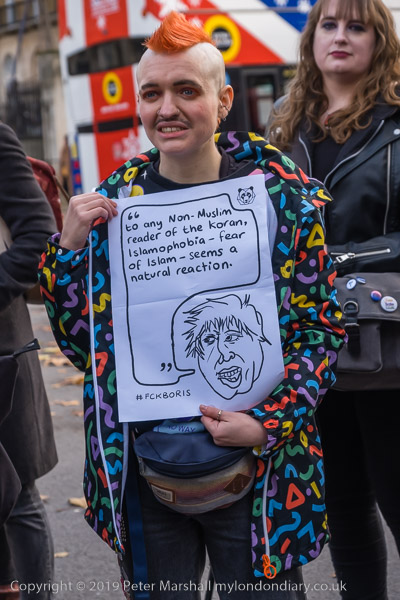 “to any Non-Muslim
reader of the Koran,
Islamophobia - fear
of Islam - seems a
natural reaction.
”
#FCKBORIS
Copyright © 2019 Peter Marshall mylondondiary.co.uk